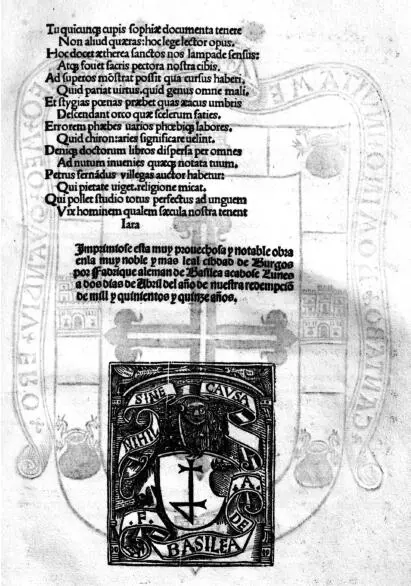 Tu quicunqȝ cupis sophiæ documenta tenere
Non aliud quæras: hoc lege lector opus.
Hoc docet ætherea sanctos nos lampade sensus:
Atqȝ fouet sacris pectora nostra cibis.
Ad superos mōstrat possit qua cursus haberi,
Quid pariat uirtus. quid genus omne mali,
Et stygias pœnas præbet quas æacus umbris
Descendant orco quæ scelerum faties.
Errorem phœbes uarios phœbiqȝ labores,
Quid chironaries significare uelint.
Deniqȝ doctorum libros dispersa per omnes
Ad nutum inuenies quæqȝ notata tuum.
Petrus fernādus villegas auctor habetur:
Qui pietate uiget. religione micat.
Qui pollet studio totus perfectus ad unguem
Vix hominem qualem sæcula nostra tenent
Iara
Imprimiose esta muy prouechosa y notable obra
enla muy noble y mas leal cibdad de Burgos
por Fadrique aleman de Basilea acabose Lunes
a dos dias de Abril del año de nuestra redempciō
de mill y quinientos y quinze años.
NIHIL
SINE CAVSA
F. A. DE
BASILEA